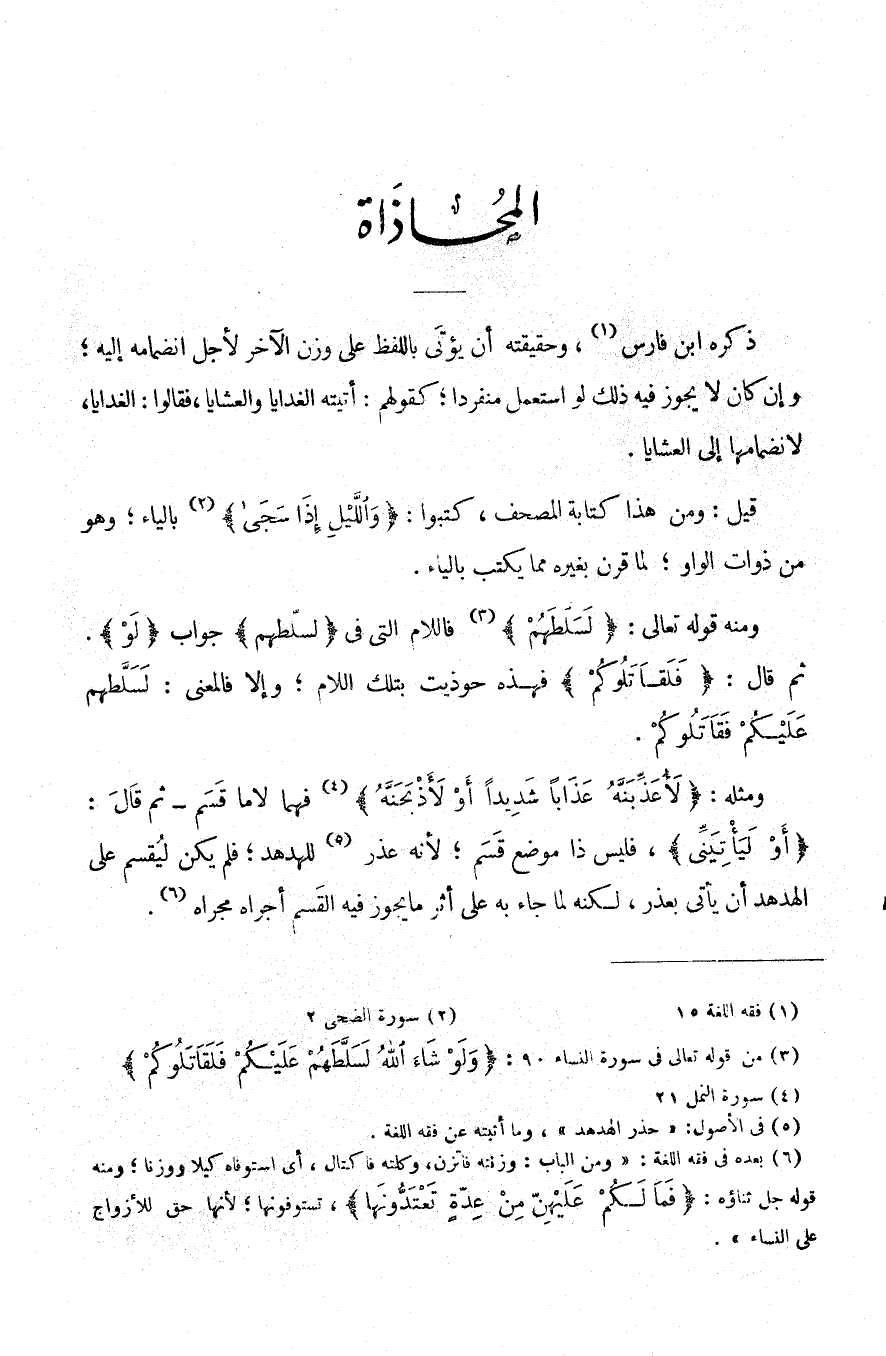 المُحَاذَاة
ذكره ابن فارس (١) ، وحقيقته أن يؤتَى باللفظ على وزن الآخر لأجل انضمامه إليه ؛
وإن كان لا يجوز فيه ذلك لو استعمل منفردا ؛ كقولهم : أتيته الغدايا والعشايا ، فقالوا : الغدايا،
لانضمامها إلى العشايا .
قيل : ومن هذا كتابة المصحف ، كتبوا : ﴿ وَٱللَّيْلِ إِذَا سَجَىٰ ﴾ (٢) بالياء ؛ وهو
من ذوات الواو ؛ لما قرن بغيره مما يكتب بالياء .
ومنه قوله تعالى : ﴿ لَسَلَّطَهُمْ ﴾ (٣) فاللام التى فى ﴿ لسلّطهم ﴾ جواب ﴿ لَوْ ﴾ .
ثم قال : ﴿ فَلَقَاتَلُوكُمْ ﴾ فهذه حوذيت بتلك اللام ؛ وإلا فالمعنى : لَسَلَّطهم
عَلَيْكُمْ فَقَاتَلُوكُمْ .
ومثله : ﴿ لَأُعَذِّبَنَّهُ عَذَاباً شَدِيداً أَوْ لَأَذْبَحَنَّهُ ﴾ (٤) فهما لاما قَسَم – ثم قَالَ :
﴿ أَوْ لَيَأْتِيَنِّى ﴾ ، فليس ذا موضع قَسَم ؛ لأنه عذر (٥) للهدهد ؛ فلم يكن ليُقسم على
الهدهد أن يأتى بعذر ، لكنه لما جاء به على أثر ما يجوز فيه القَسم أجراه مجراه (٦) .
(١) فقه اللغة ١٥ (٢) سورة الضحى ٢
(٣) من قوله تعالى فى سورة النساء ٩٠ : ﴿ وَلَوْ شَاءَ ٱللهُ لَسَلَّطَهُمْ عَلَيْكُمْ فَلَقَاتَلُوكُمْ ﴾
(٤) سورة النمل ٢١
(٥) فى الأصول: « حذر الهدهد » ، وما أثبته عن فقه اللغة .
(٦) بعده فى فقه اللغة : « ومن الباب : وزنته فاتزن، وكلته فاكتال ، أى استوفاه كيلا ووزنا ؛ ومنه
قوله جل ثناؤه : ﴿ فَمَا لَكُمْ عَلَيْهِنّ مِنْ عِدّةٍ تَعْتَدُّونَهَا ﴾ ، تستوفونها ؛ لأنها حق للأزواج
على النساء » .